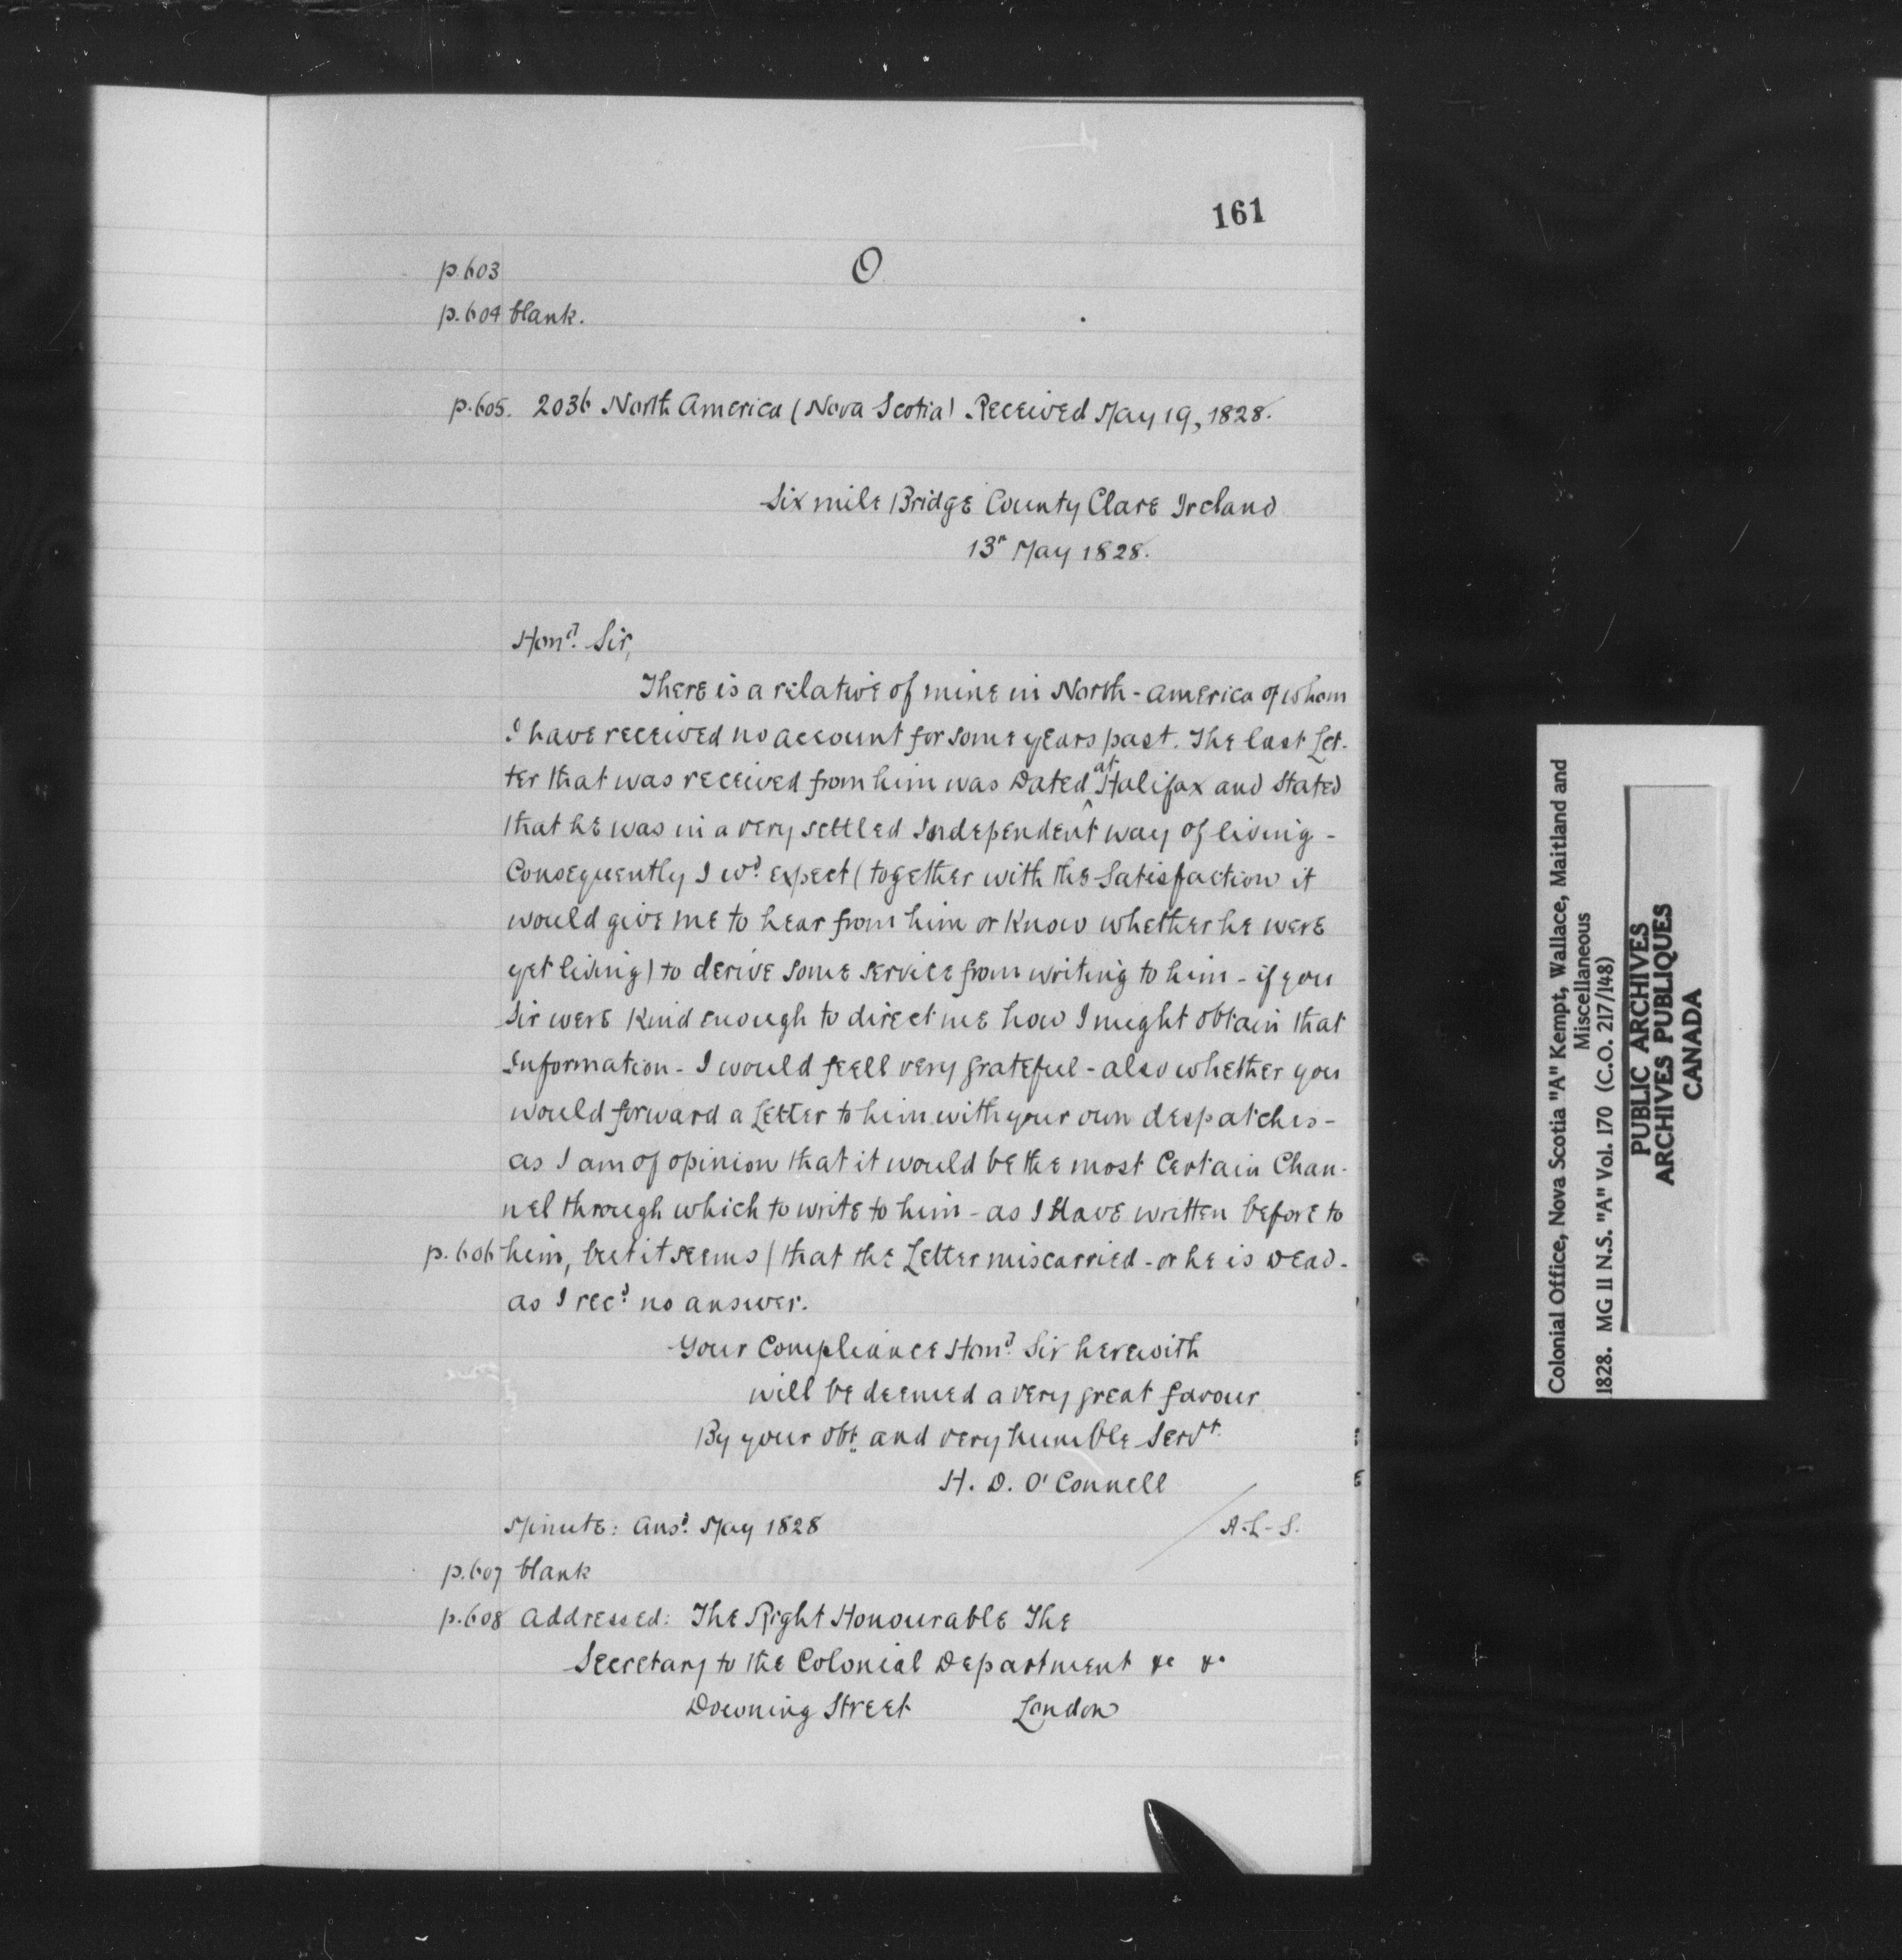 161
p.603 O
p.604 blank.
p.605. 2036 North America (Nova Scotia) Received May 19, 1828.
Six mile Bridge County Clare Ireland
13th May 1828.
Hond. Sir,
There is a relative of mine in North-America of whom
I have received no account for some years past. The last Let-
ter that was received from him was Dated at Halifax and Stated
that he was in a very settled Independent way of living -
Consequently I wd. expect (together with the Satisfaction it
would give me to hear from him or Know whether he were
yet living) to derive some service from writing to him - if you
Sir were Kind enough to direct me how I might obtain that
Information - I would feell very grateful - also whether you
would forward a Letter to him with your own despatches -
as I am of opinion that it would be the most Certain Chan-
nel through which to write to him - as I Have written before to
p.606 him, but it seems / that the Letter miscarried - or he is Dead -
as I recd. no answer.
Your Compliance Hond. Sir herewith
will be deemed a very great favour
By your obt. and very humble Servt.
H. D. O'Connell
Minute: Ansd. May 1828 A.L.S.
p.607 blank
p.608 Addressed: The Right Honourable The
Secretary to the Colonial Department &c &c
Downing Street London
Colonial Office, Nova Scotia "A" Kempt, Wallace, Maitland and
Miscellaneous
1828. MG 11 N.S. "A" Vol. 170 (C.O. 217/148)
PUBLIC ARCHIVES
ARCHIVES PUBLIQUES
CANADA